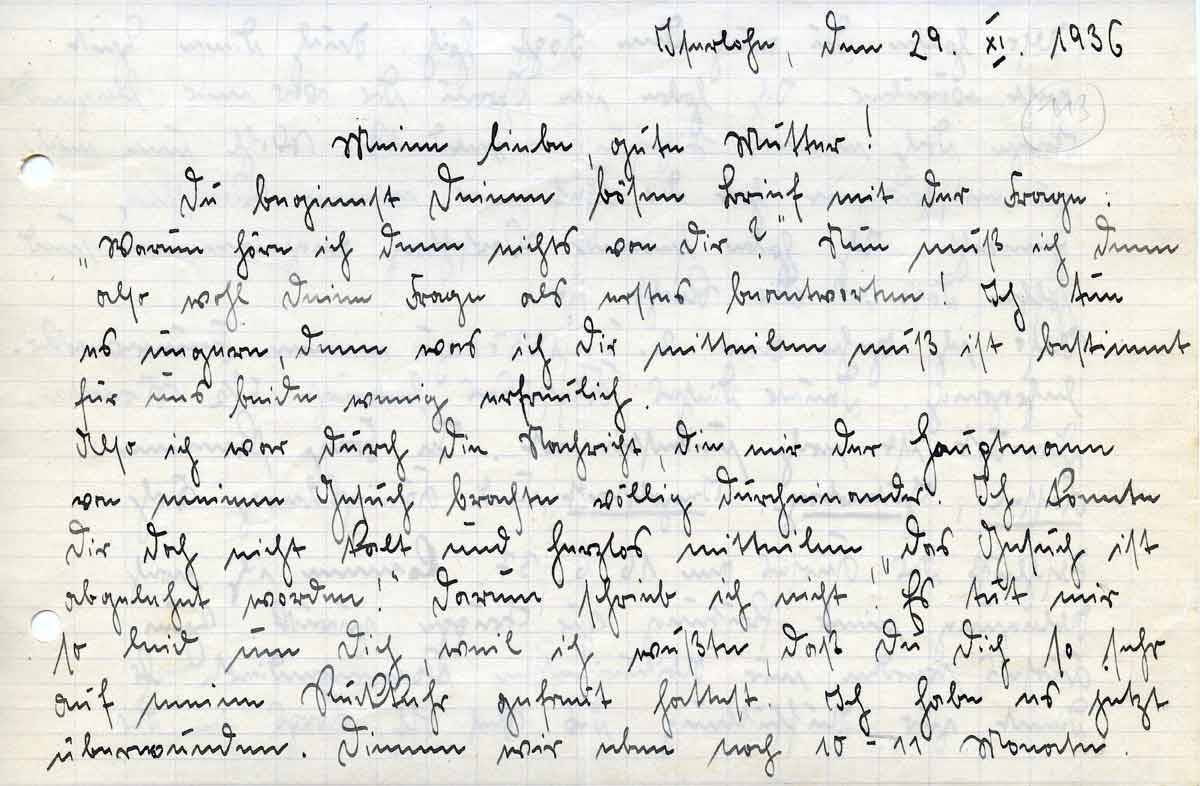 Iserlohn, den 29. XI. 1936
Meine liebe, gute Mutter!
Du beginnst Deinen bösen Brief mit der Frage:
"Warum höre ich denn nichts von Dir?" Nun muß ich denn
also wohl Deine Frage als erstes beantworten! Ich tue
es ungern, denn was ich Dir mitteilen muß ist bestimmt
für uns beide wenig erfreulich.
Also ich war durch die Nachricht, die mir der Hauptmann
von meinem Gesuch brachte völlig durcheinander. Ich konnte
Dir doch nicht kalt und herzlos mitteilen "das Gesuch ist
abgelehnt worden!" Darum schrieb ich nicht! Es tut mir
so leid um Dich, weil ich wußte, daß Du Dich so sehr
auf meine Rückkehr gefreut hattest. Ich habe es jetzt
überwunden. Dienen wir eben noch 10-11 Monate.